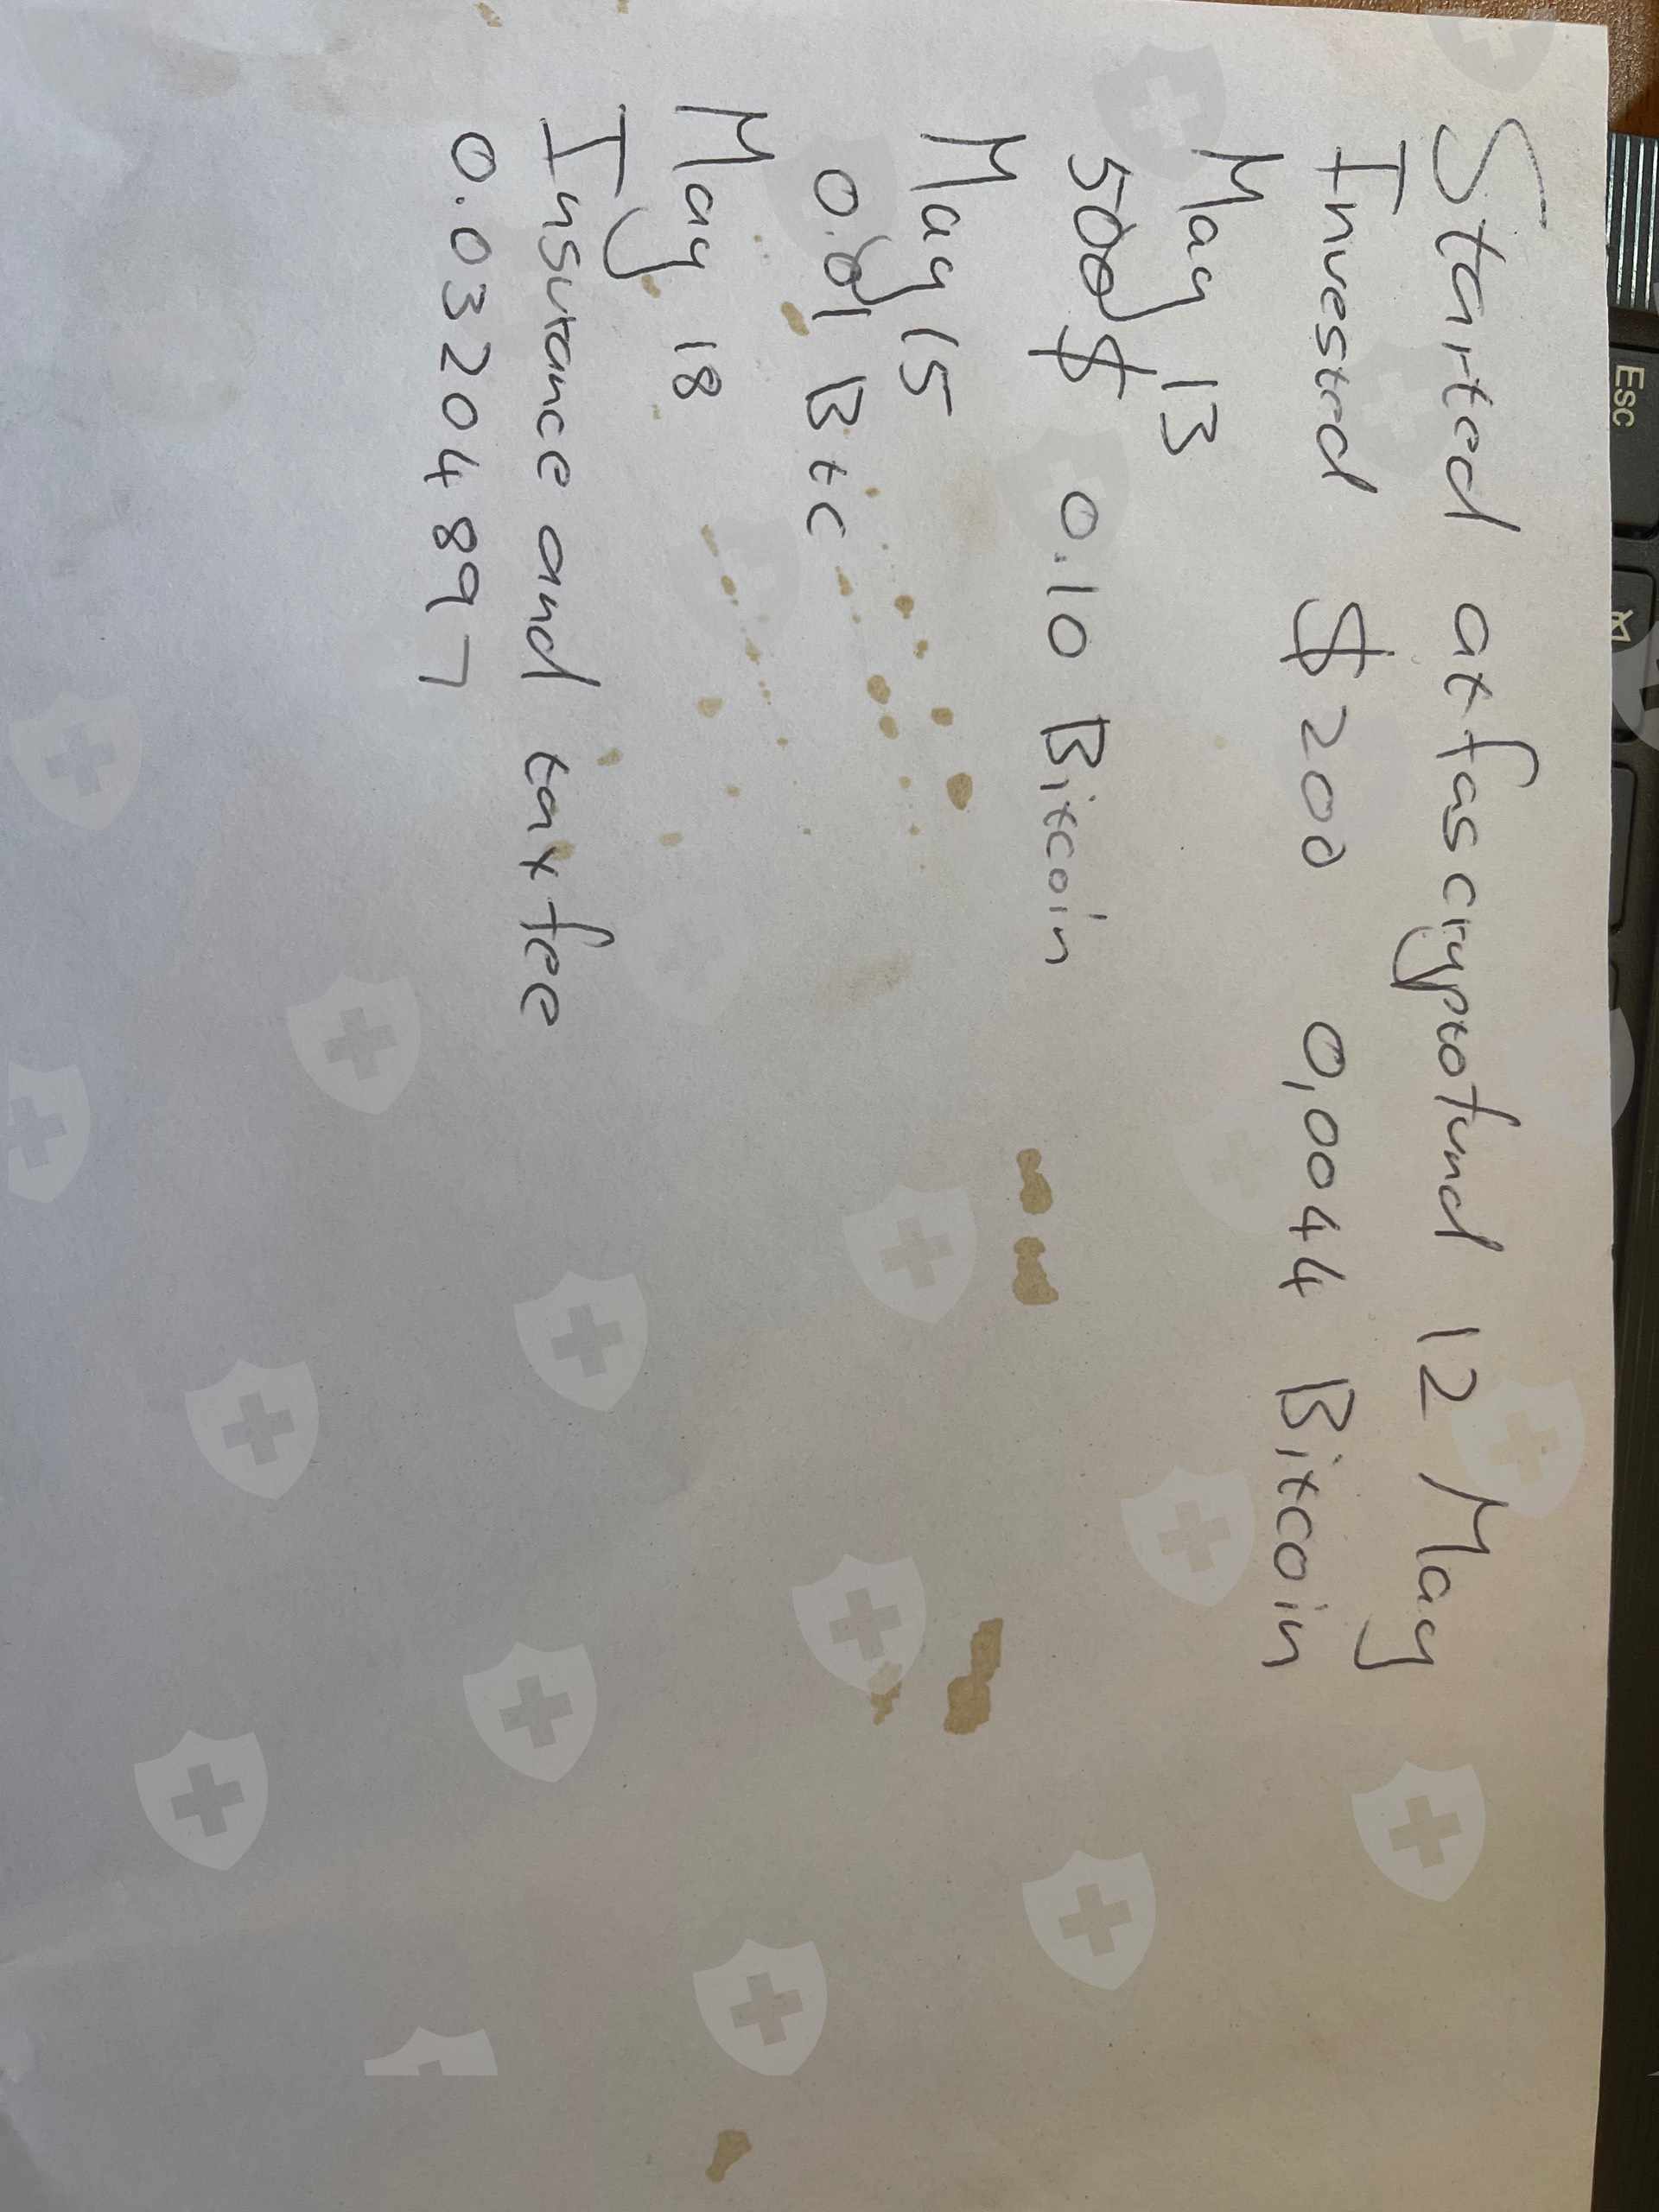 Started at fascryptofund 12 May
Invested $200 0,0044 Bitcoin
May 13
500$ 0.10 Bitcoin
May 15
0.01 Btc
May 18
Insurance and tax fee
0.03204897
Esc